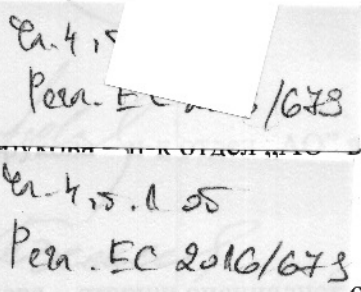 Чл. 4, 5
Регл. ЕС /679
Чл. 4, 5. 1 от
Регл. ЕС 2016/679